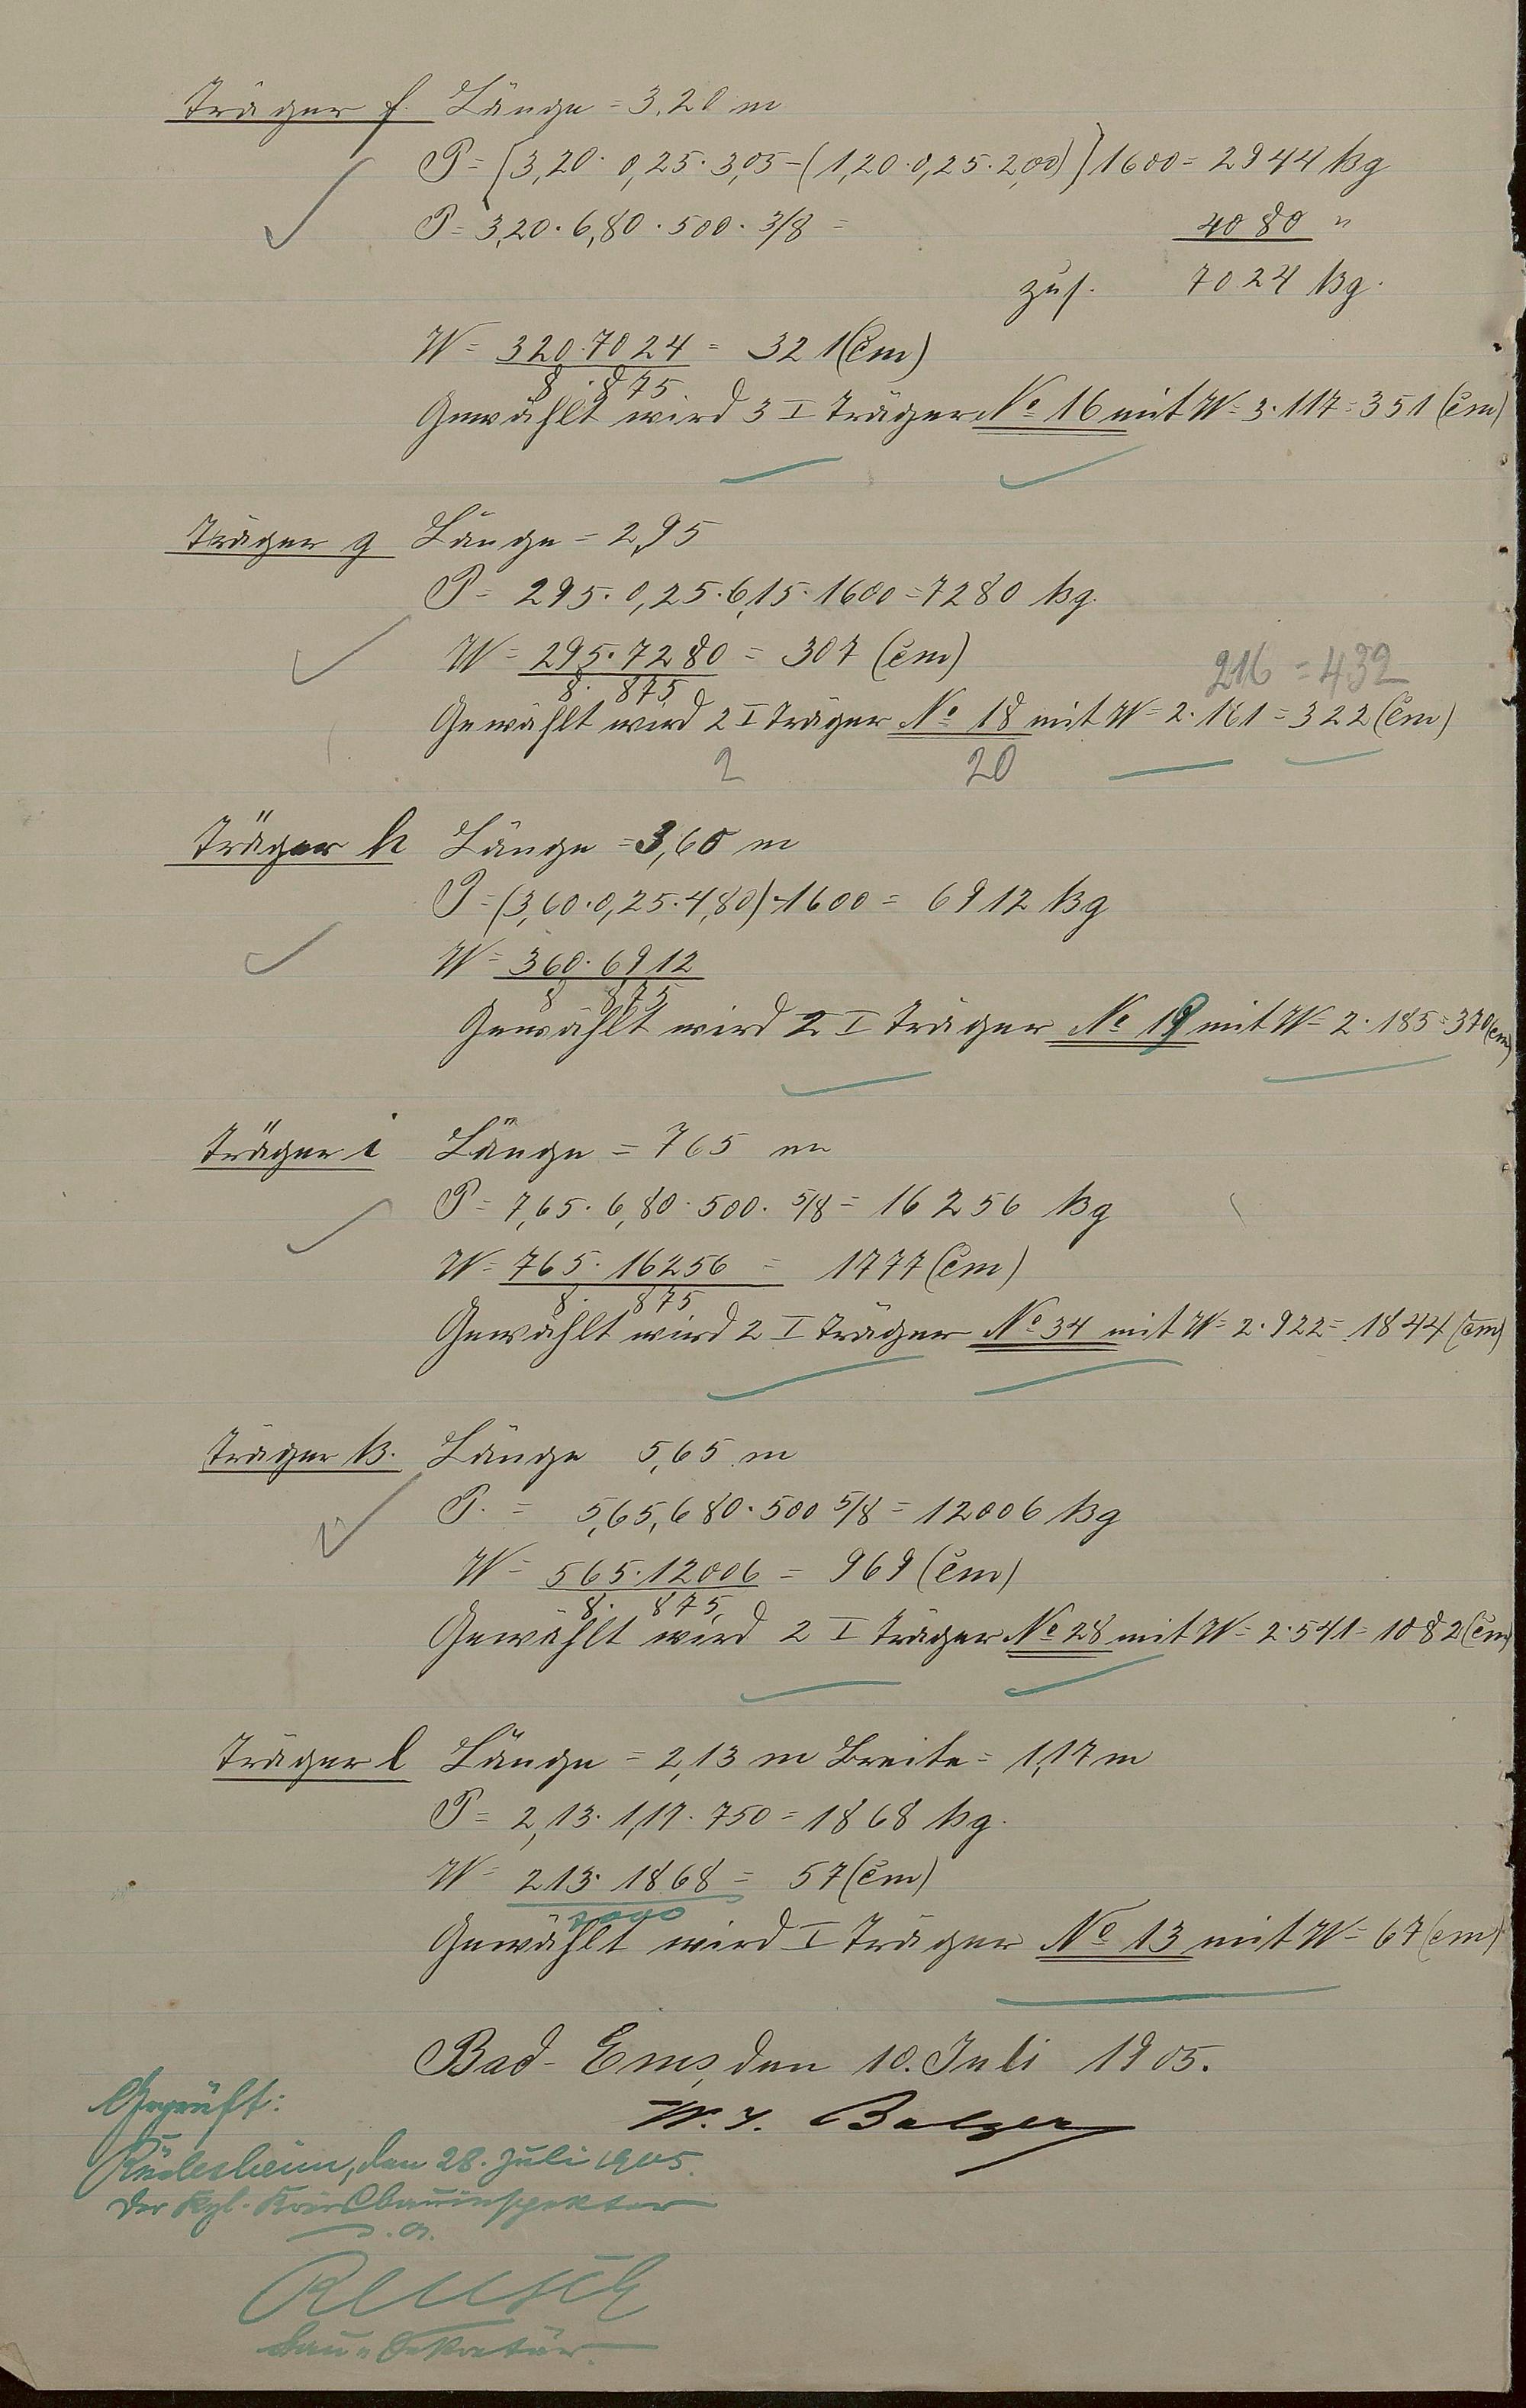 Träger f. Länge = 3,20 m
P = [3,20 · 0,25 · 3,05 - (1,20 · 0,25 · 2,00)] 1600 = 2944 kg
P = 3,20 · 6,80 · 500 · 3/8 = 4080 "
zus. 7024 kg.
W = 320 · 7024 = 321 (cm)
8 · 875
Gewählt wird 3 I Träger No 16 mit W = 3 · 117 = 351 (cm)
Träger g Länge = 2,95
P = 295 · 0,25 · 6,15 · 1600 = 7280 kg.
W = 295 · 7280 = 307 (cm)
8 · 875
216 = 432
Gewählt wird 2 I Träger No 18 mit W = 2 · 161 = 322 (cm)
2 20
Träger h Länge = 3,60 m
P = (3,60 · 0,25 · 4,80) · 1600 = 6912 kg
W = 360 · 6912
8 875
Gewählt wird 2 I Träger No 19 mit W = 2 · 185 = 370 (cm)
Träger i Länge = 765 m
P = 7,65 · 6,80 · 500 · 5/8 = 16256 kg
W = 765 · 16256 = 1777 (cm)
8 · 875
Gewählt wird 2 I Träger No 34 mit W = 2 · 922 = 1844 (cm)
Träger k. Länge 5,65 m
P. = 5,65, 680 · 500 5/8 = 12006 kg
W = 565 · 12006 = 969 (cm)
8 · 875
Gewählt wird 2 I Träger No 28 mit W = 2 · 541 = 1082 (cm)
Träger l Länge = 2,13 m Breite = 1,17 m
P = 2,13 · 1,17 · 750 = 1868 kg.
W = 213 · 1868 = 57 (cm)
7000
Gewählt wird I Träger No 13 mit W = 67 (cm)
Bad-Ems, den 10. Juli 1905.
W. Balzer
Geprüft:
Rüdesheim, den 28. Juli 1905.
Der Kgl. Kreisbauinspektor
Reusch
Bau-Sekretär.